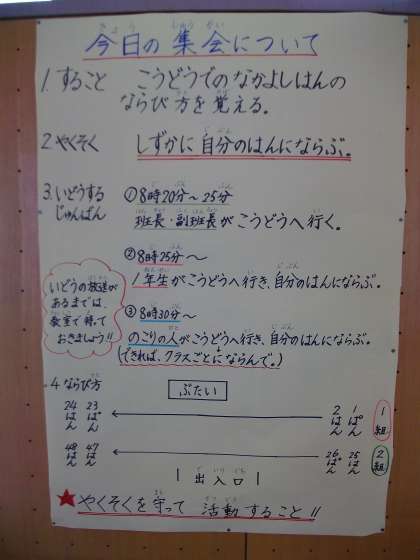 今日の集会について
1.すること こうどうでのなかよしはんの
ならび方を覚える。
2.やくそく しずかに自分のはんにならぶ。
3.いどうする
じゅんばん
①8時20分〜25分
班長・副班長がこうどうへ行く。
②8時25分〜
1年生がこうどうへ行き、自分のはんにならぶ。
③8時30分〜
のこりの人がこうどうへ行き、自分のはんにならぶ。
(できれば、クラスごとにならんで。)
いどうの放送が
あるまでは、
教室で待って
おきましょう!!
4 ならび方
ぶたい
24ぱん 23ぱん 2はん 1ぱん 1組
48はん 47はん 26ぱん 25はん 2組
出入口
やくそくを守って活動すること!!